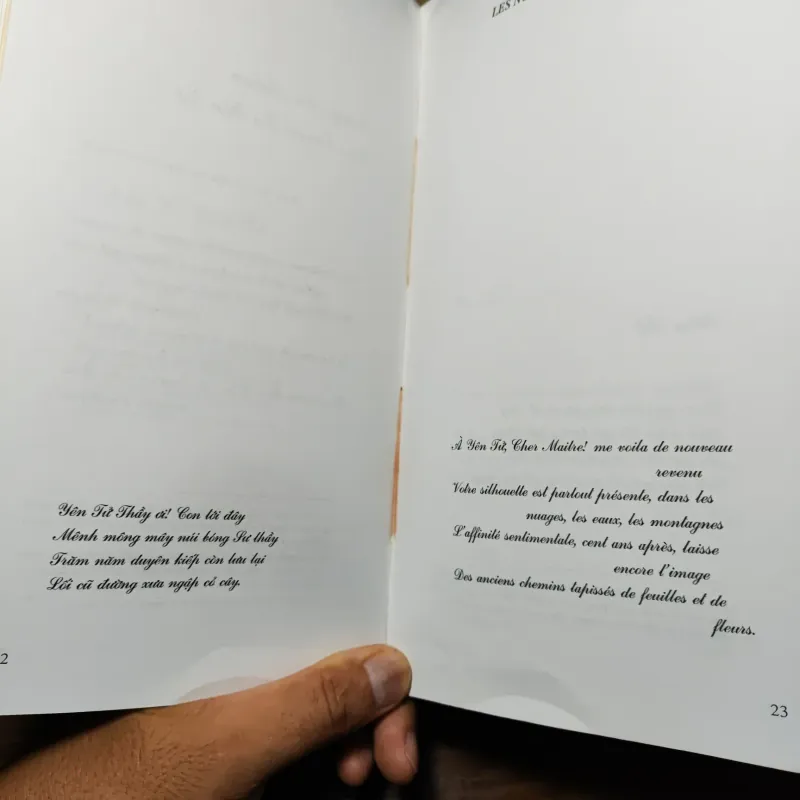 Yên Tử Thầy ơi! Con tới đây
Mênh mông mây núi bóng Sư thầy
Trăm năm duyên kiếp còn lưu lại
Lối cũ đường xưa ngập cỏ cây.
2
LES
À Yên Tử, Cher Maitre! me voila de nouveau
revenu
Votre silhouette est partout présente, dans les
nuages, les eaux, les montagnes
L'affinité sentimentale, cent ans après, laisse
encore l'image
Des anciens chemins tapissés de feuilles et de
fleurs.
23